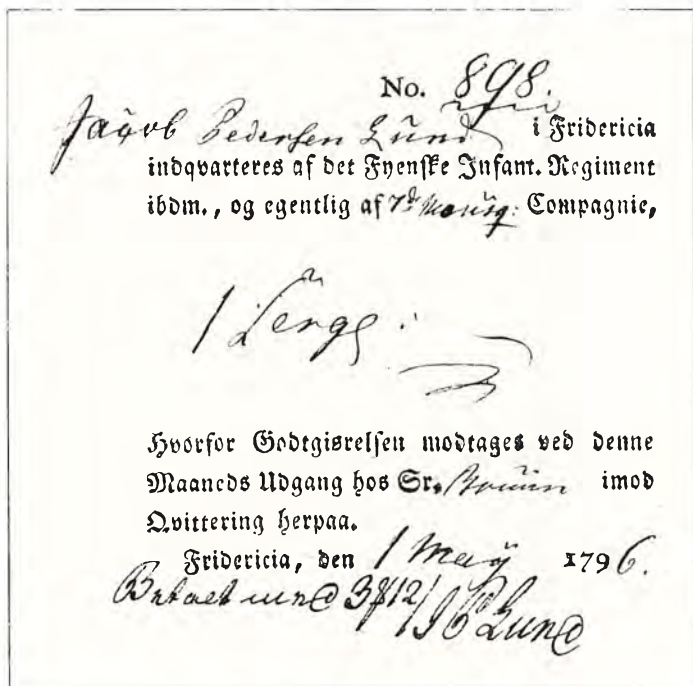 No. 898.
Jacob Pedersen Lund i Fridericia
indqvarteres af det Fyenske Infant. Regiment
ibdm., og egentlig af 7de Mousq: Compagnie,
1 Senge.
Hvorfor Godtgiørelsen modtages ved denne
Maaneds Udgang hos Sr. Bruun imod
Qvittering herpaa.
Fridericia, den 1 May 1796.
Betalt med 3 12 Lund